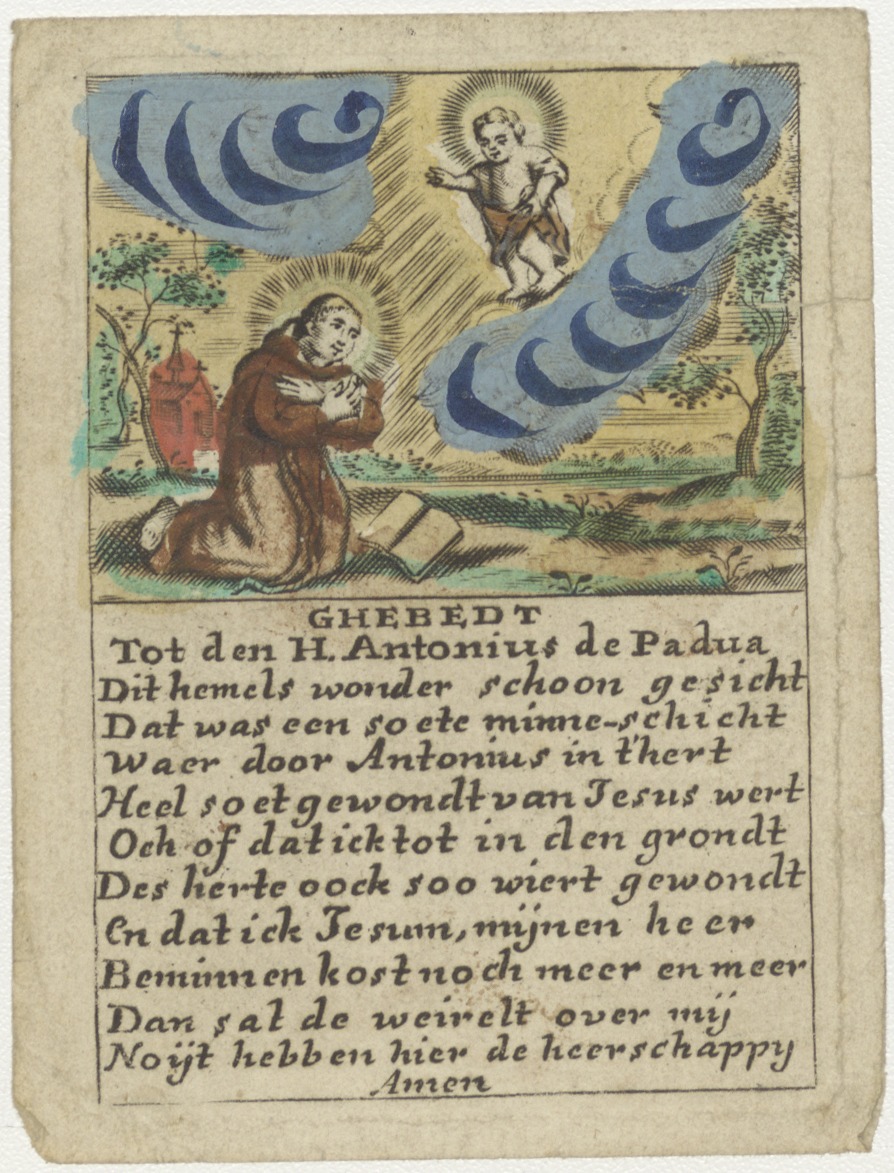 GHEBEDT
Tot den H. Antonius de Padua
Dit hemels wonder schoon gesicht
Dat was een soete minne-schicht
Waer door Antonius in t'hert
Heel soet gewondt van Jesus wert
Och of dat ick tot in den grondt
Des herte oock soo wiert gewondt
En dat ick Jesum, mijnen heer
Beminnen kost noch meer en meer
Dan sal de weirelt over mij
Noijt hebben hier de heerschappy
Amen